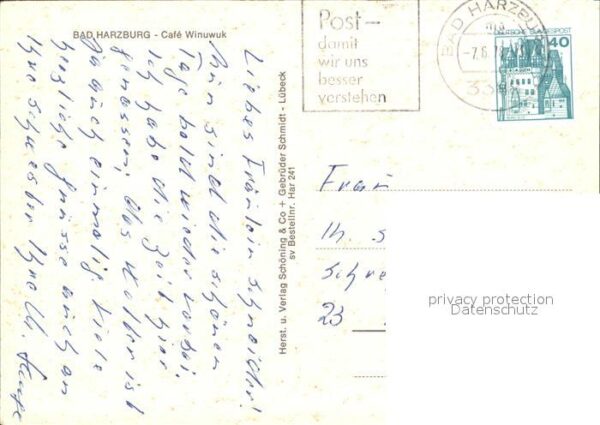 BAD HARZBURG - Café Winuwuk
Liebes Fräulein Schneider!
Nun sind die schönen
Tage bald wieder vorbei.
Ich habe die Zeit hier
genossen, das Wetter ist
auch einmalig. Viele
herzliche Grüsse auch an
Ihre Schwester Ihre
Herst. u. Verlag Schöning & Co + Gebrüder Schmidt - Lübeck
sv Bestellnr. Har 241
Post-
damit
wir uns
besser
verstehen
BAD HARZBURG
DEUTSCHE BUNDESPOST
40
Frau
23
privacy protection
Datenschutz